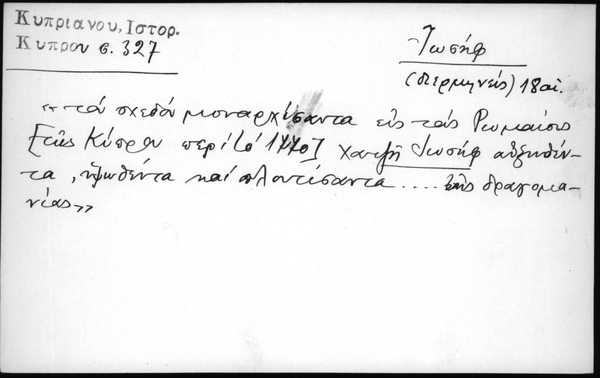 Κυπριανου, Ιστορ.
Κυπρου σ. 327
Ἰωσήφ
(διερμηνεύς) 18 αἰ.
"τόν σχεδόν μοναρχήσαντα εἰς τούς Ρωμαίους
[τῆς Κύπρου περί τό 1770] χατζῆ Ἰωσήφ αὐξηθέν-
τα, ὑψωθέντα καί πλουτίσαντα .... τῆς δραγομα-
νίας"